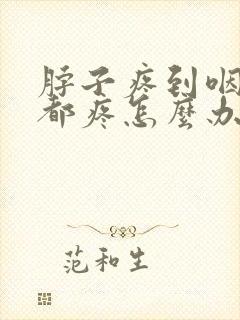 脖子疼到咽
都疼怎麼办
范和生